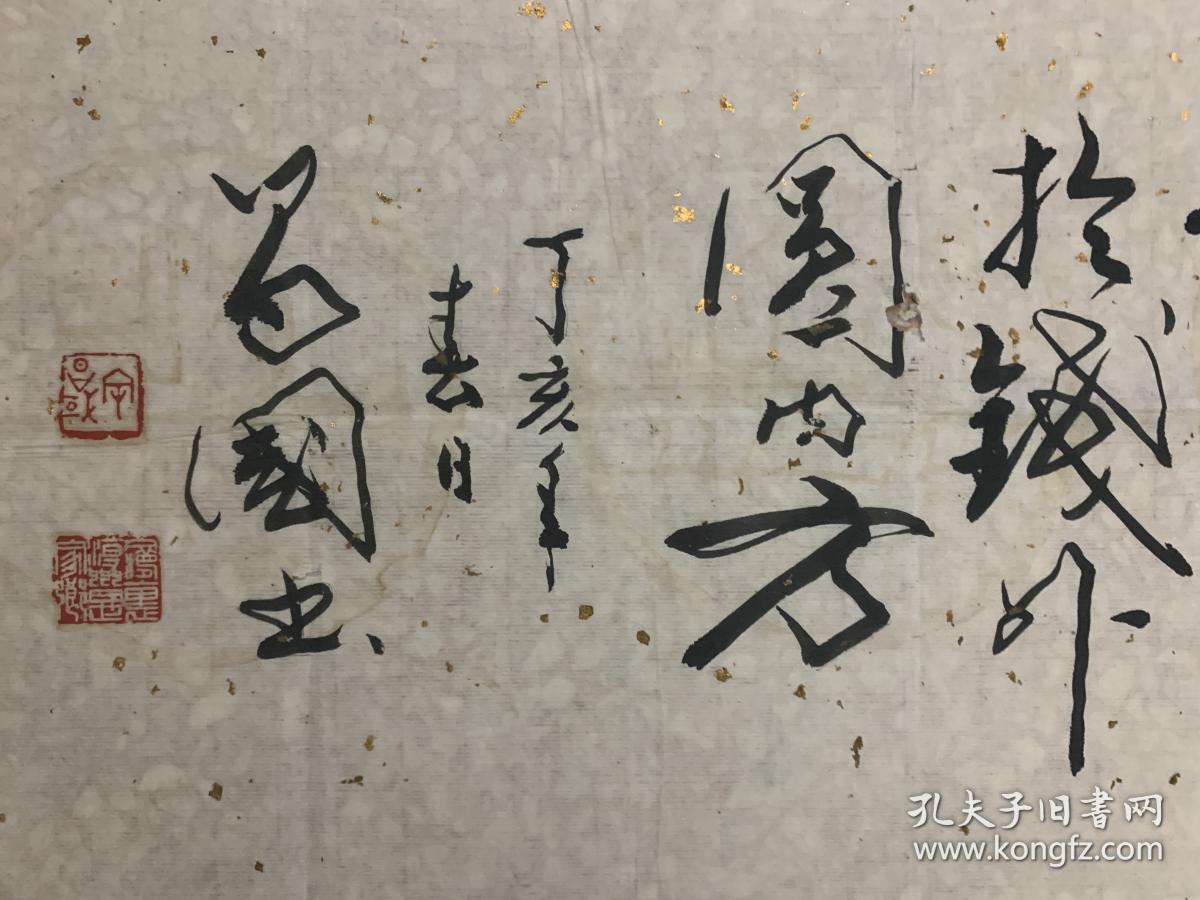 於錢外
圓內方
丁亥年
春日
國书
孔夫子旧書网
www.kongfz.com